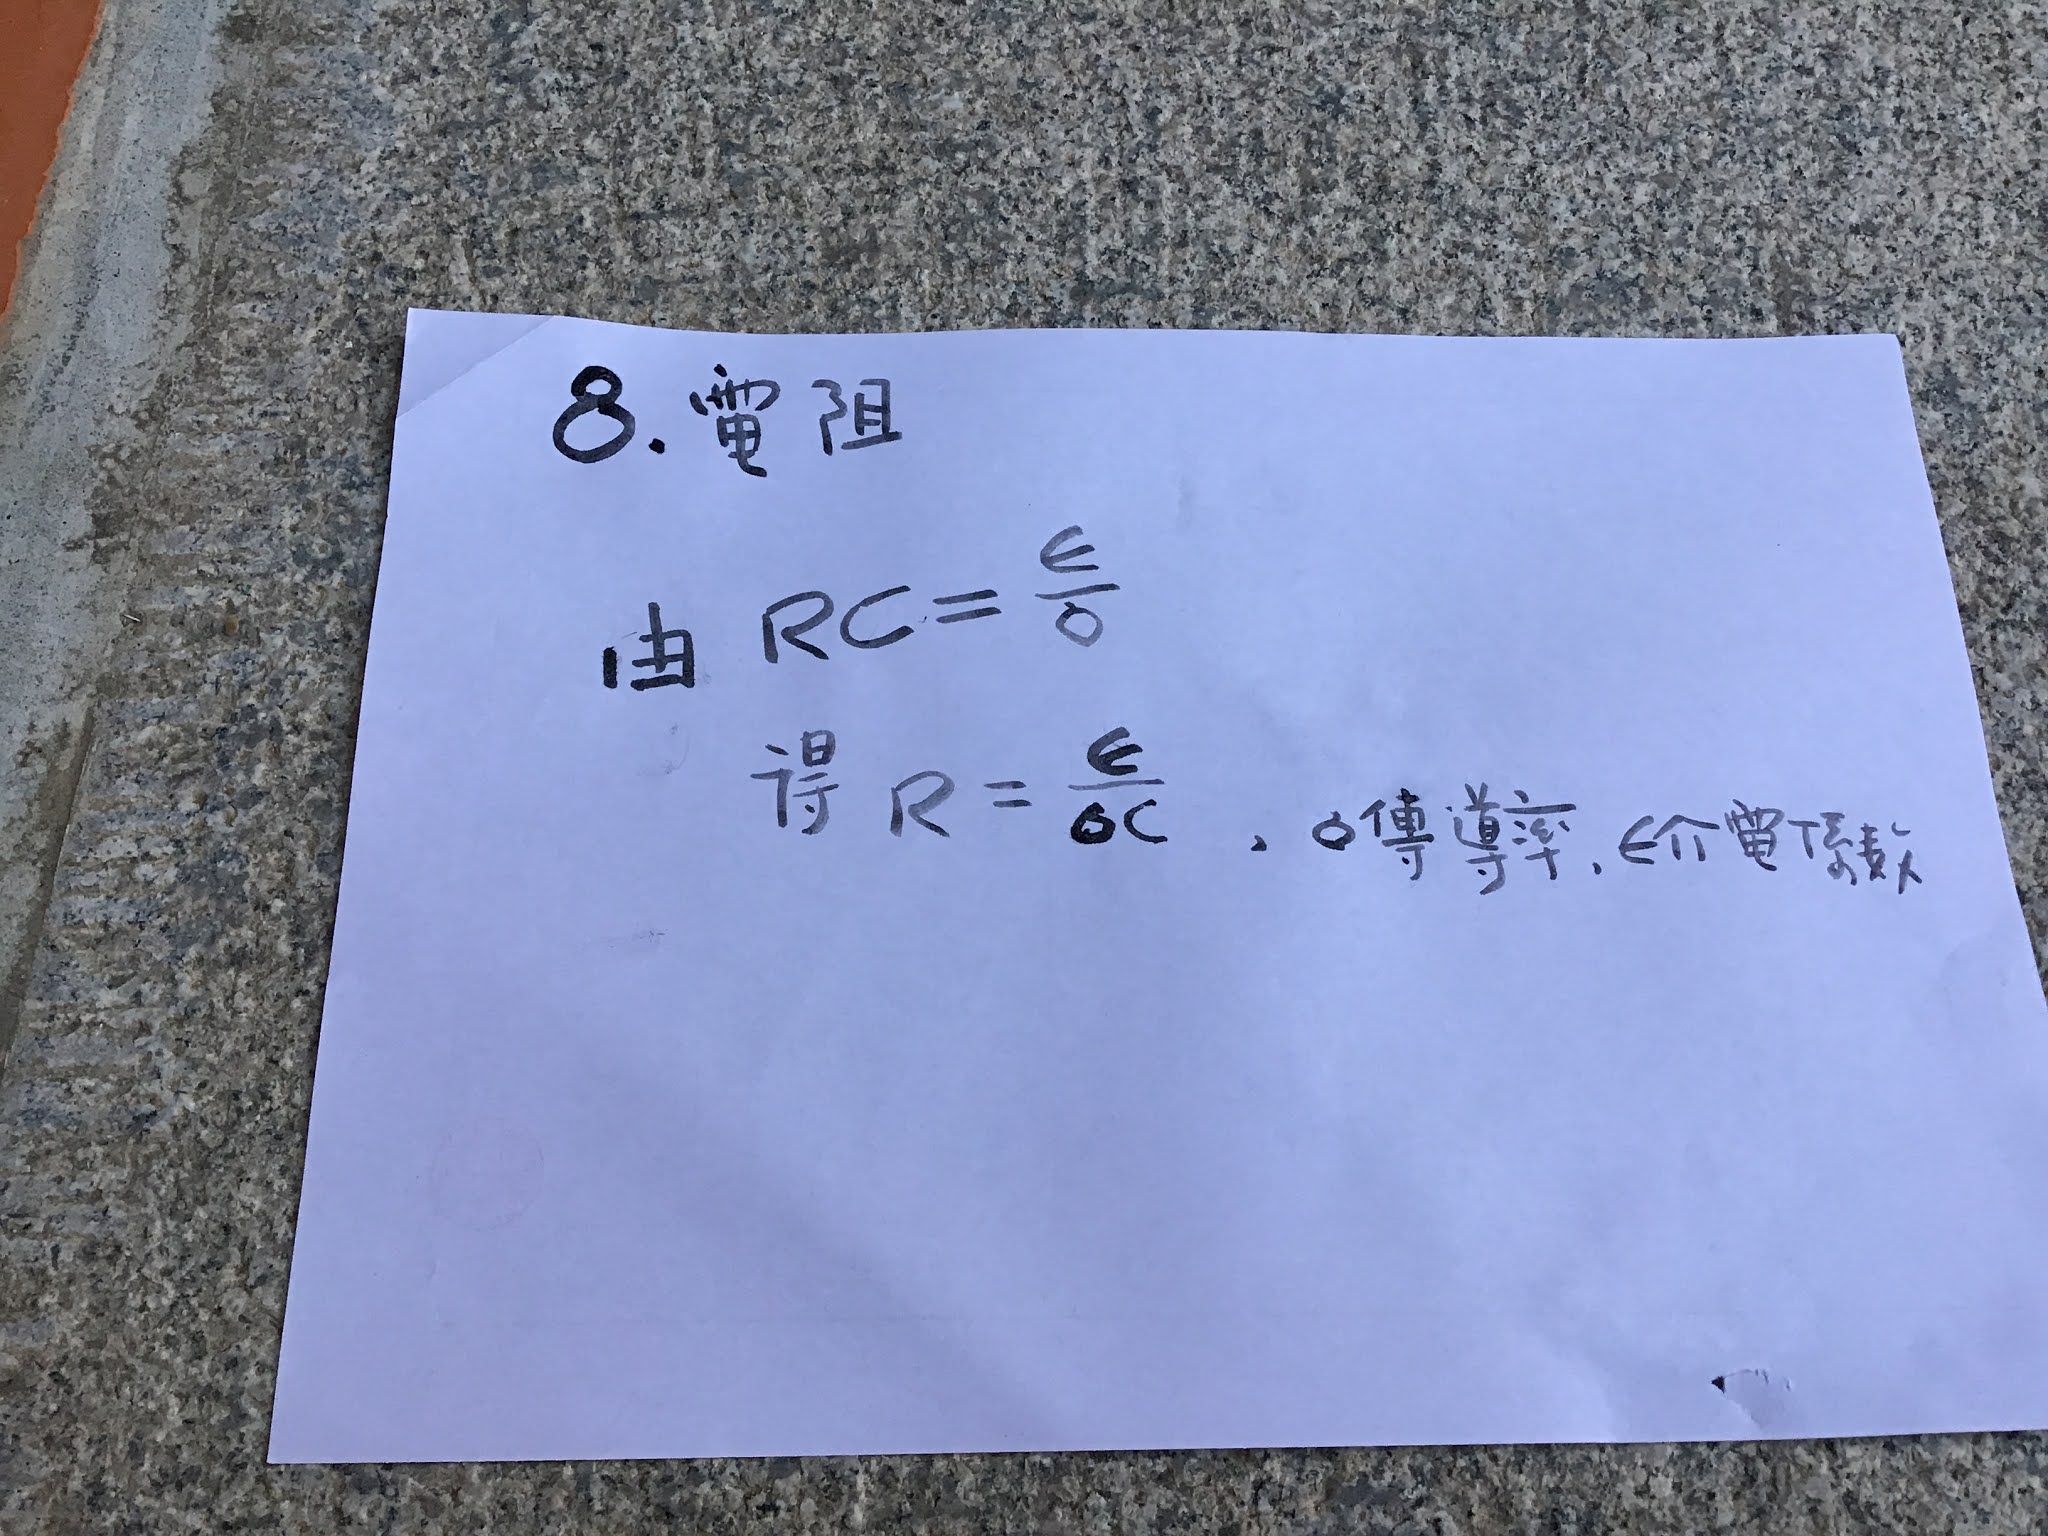 8. 電阻
由 RC = ε/σ
得 R = ε/σC , σ傳導率, ε介電係數